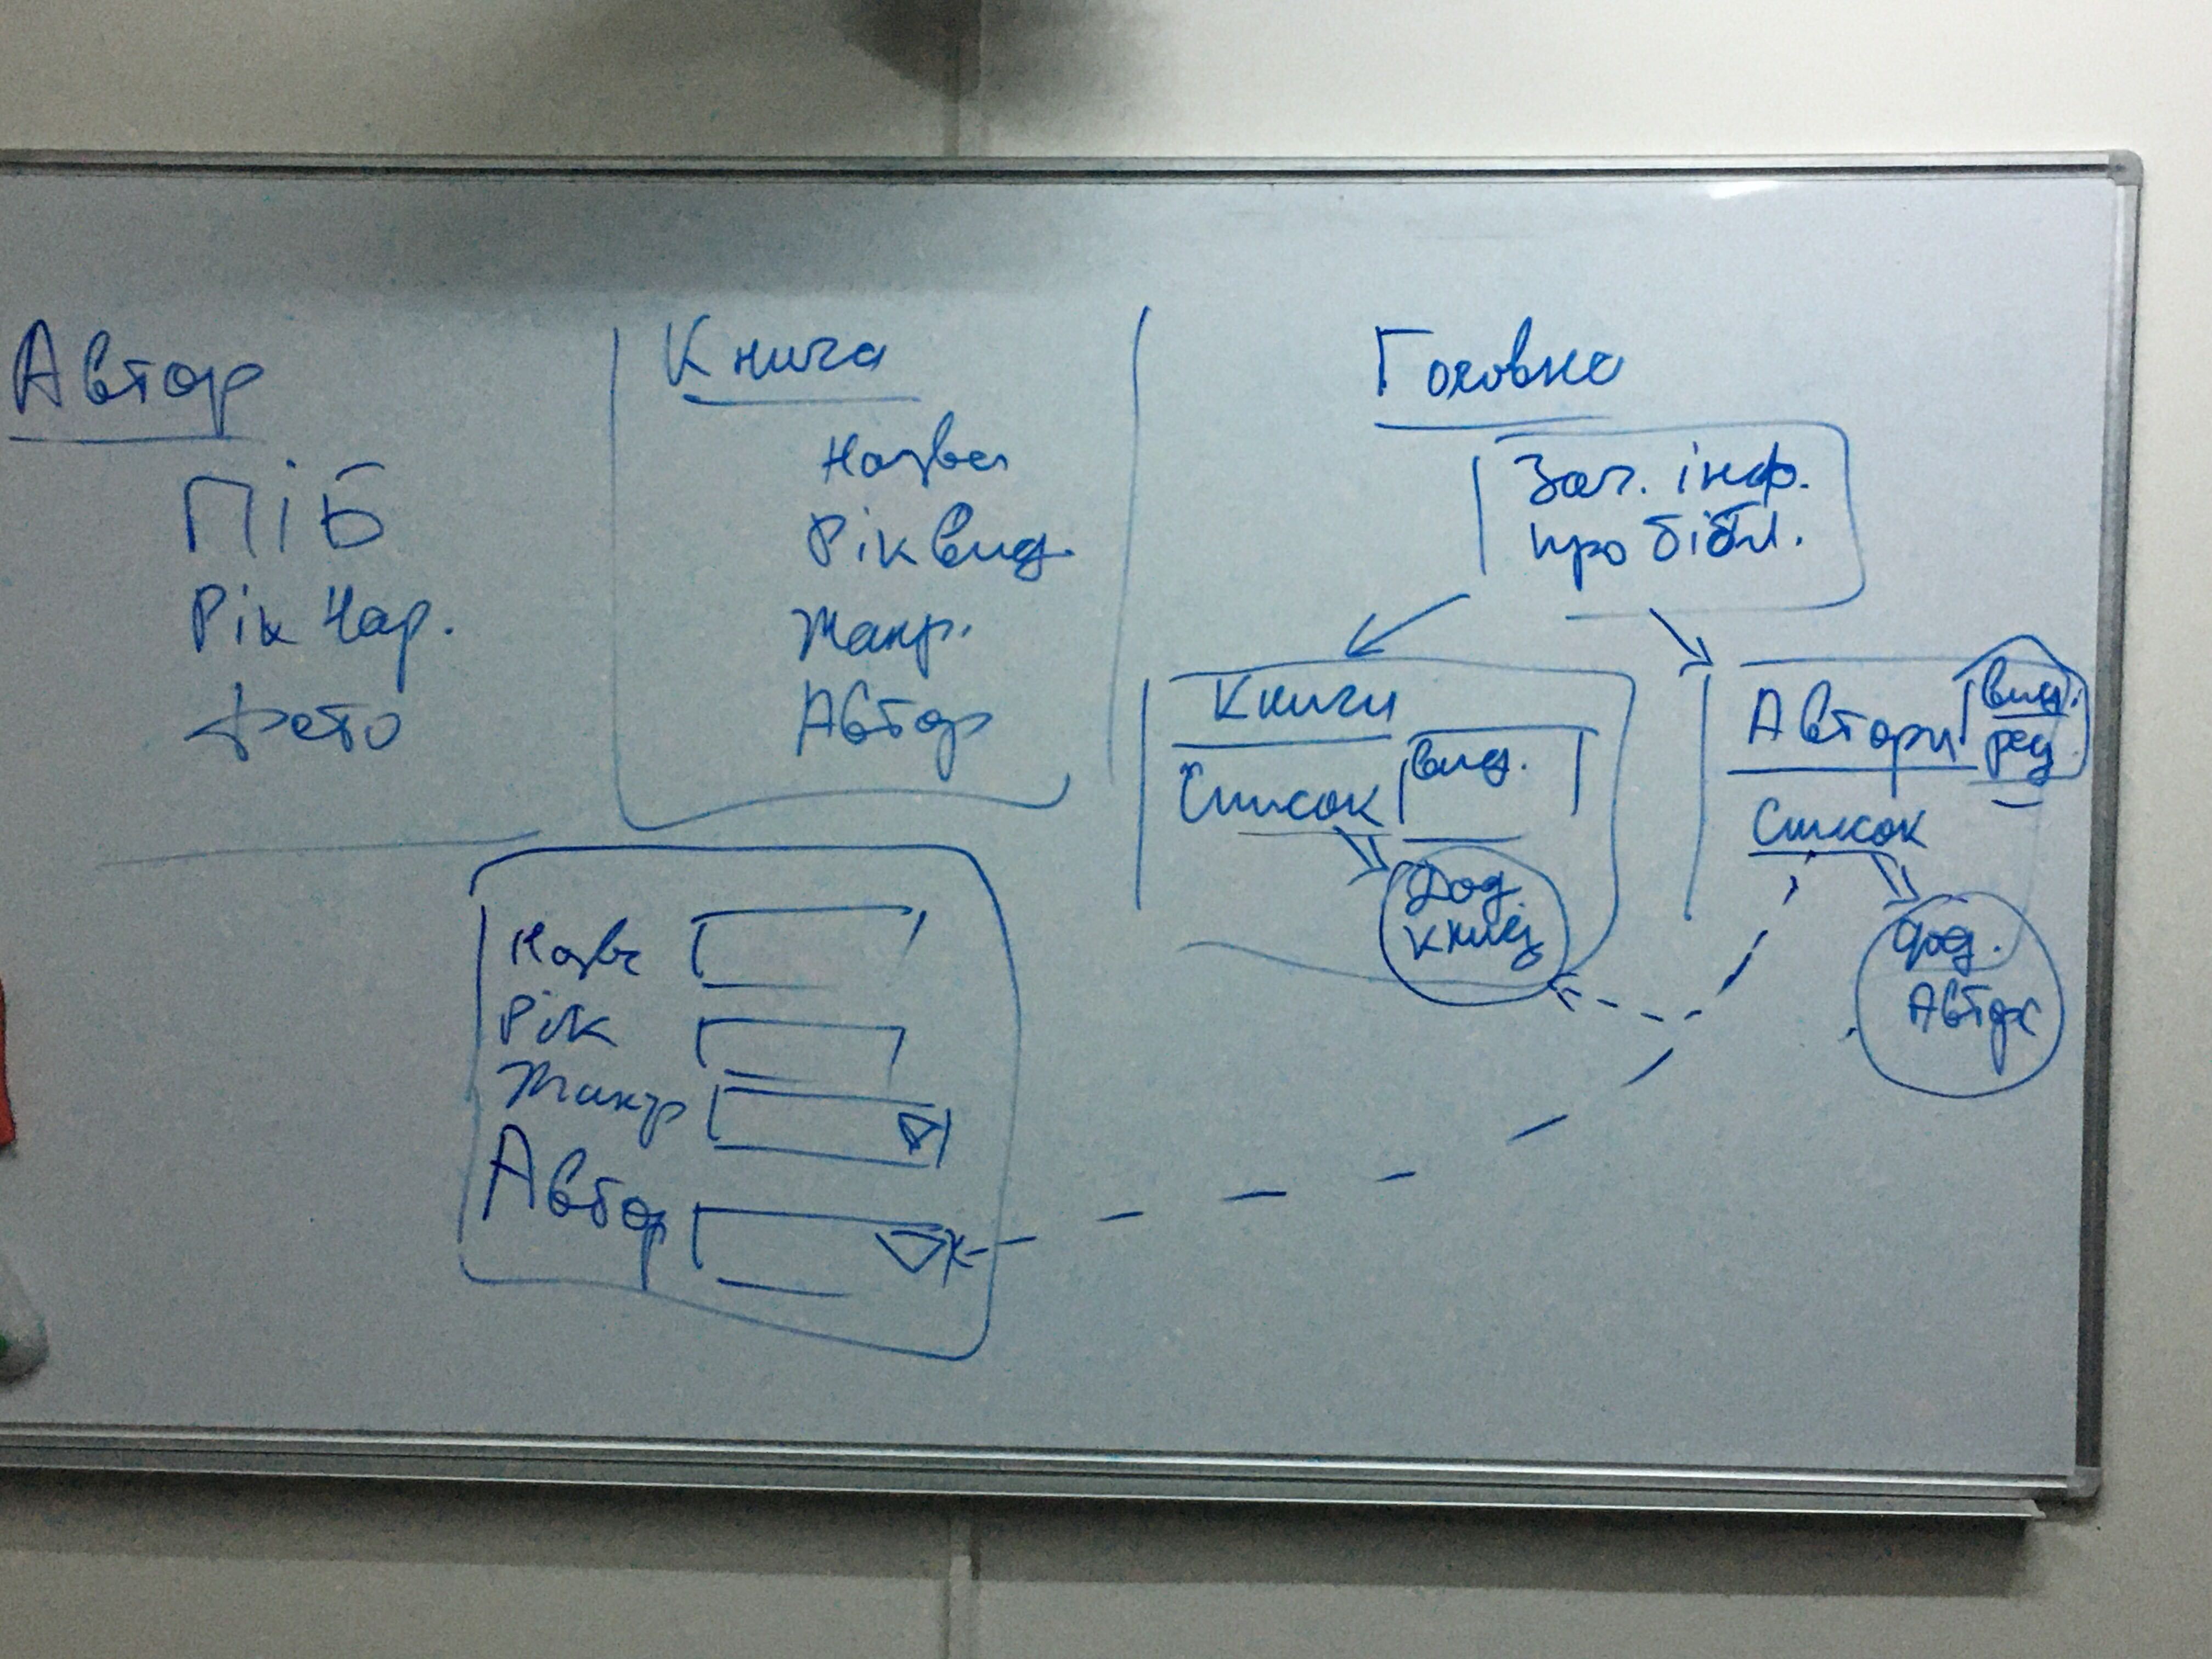 Автор
ПІБ
Рік Нар.
Фото
Книга
Назва
Рік вид.
Жанр.
Автор
Головна
Заг. інф.
про бібл.
Книги
Список
вид.
Дод.
книг
Автори
вид.
ред
Список
Дод.
Автор
Назва
Рік
Жанр
Автор